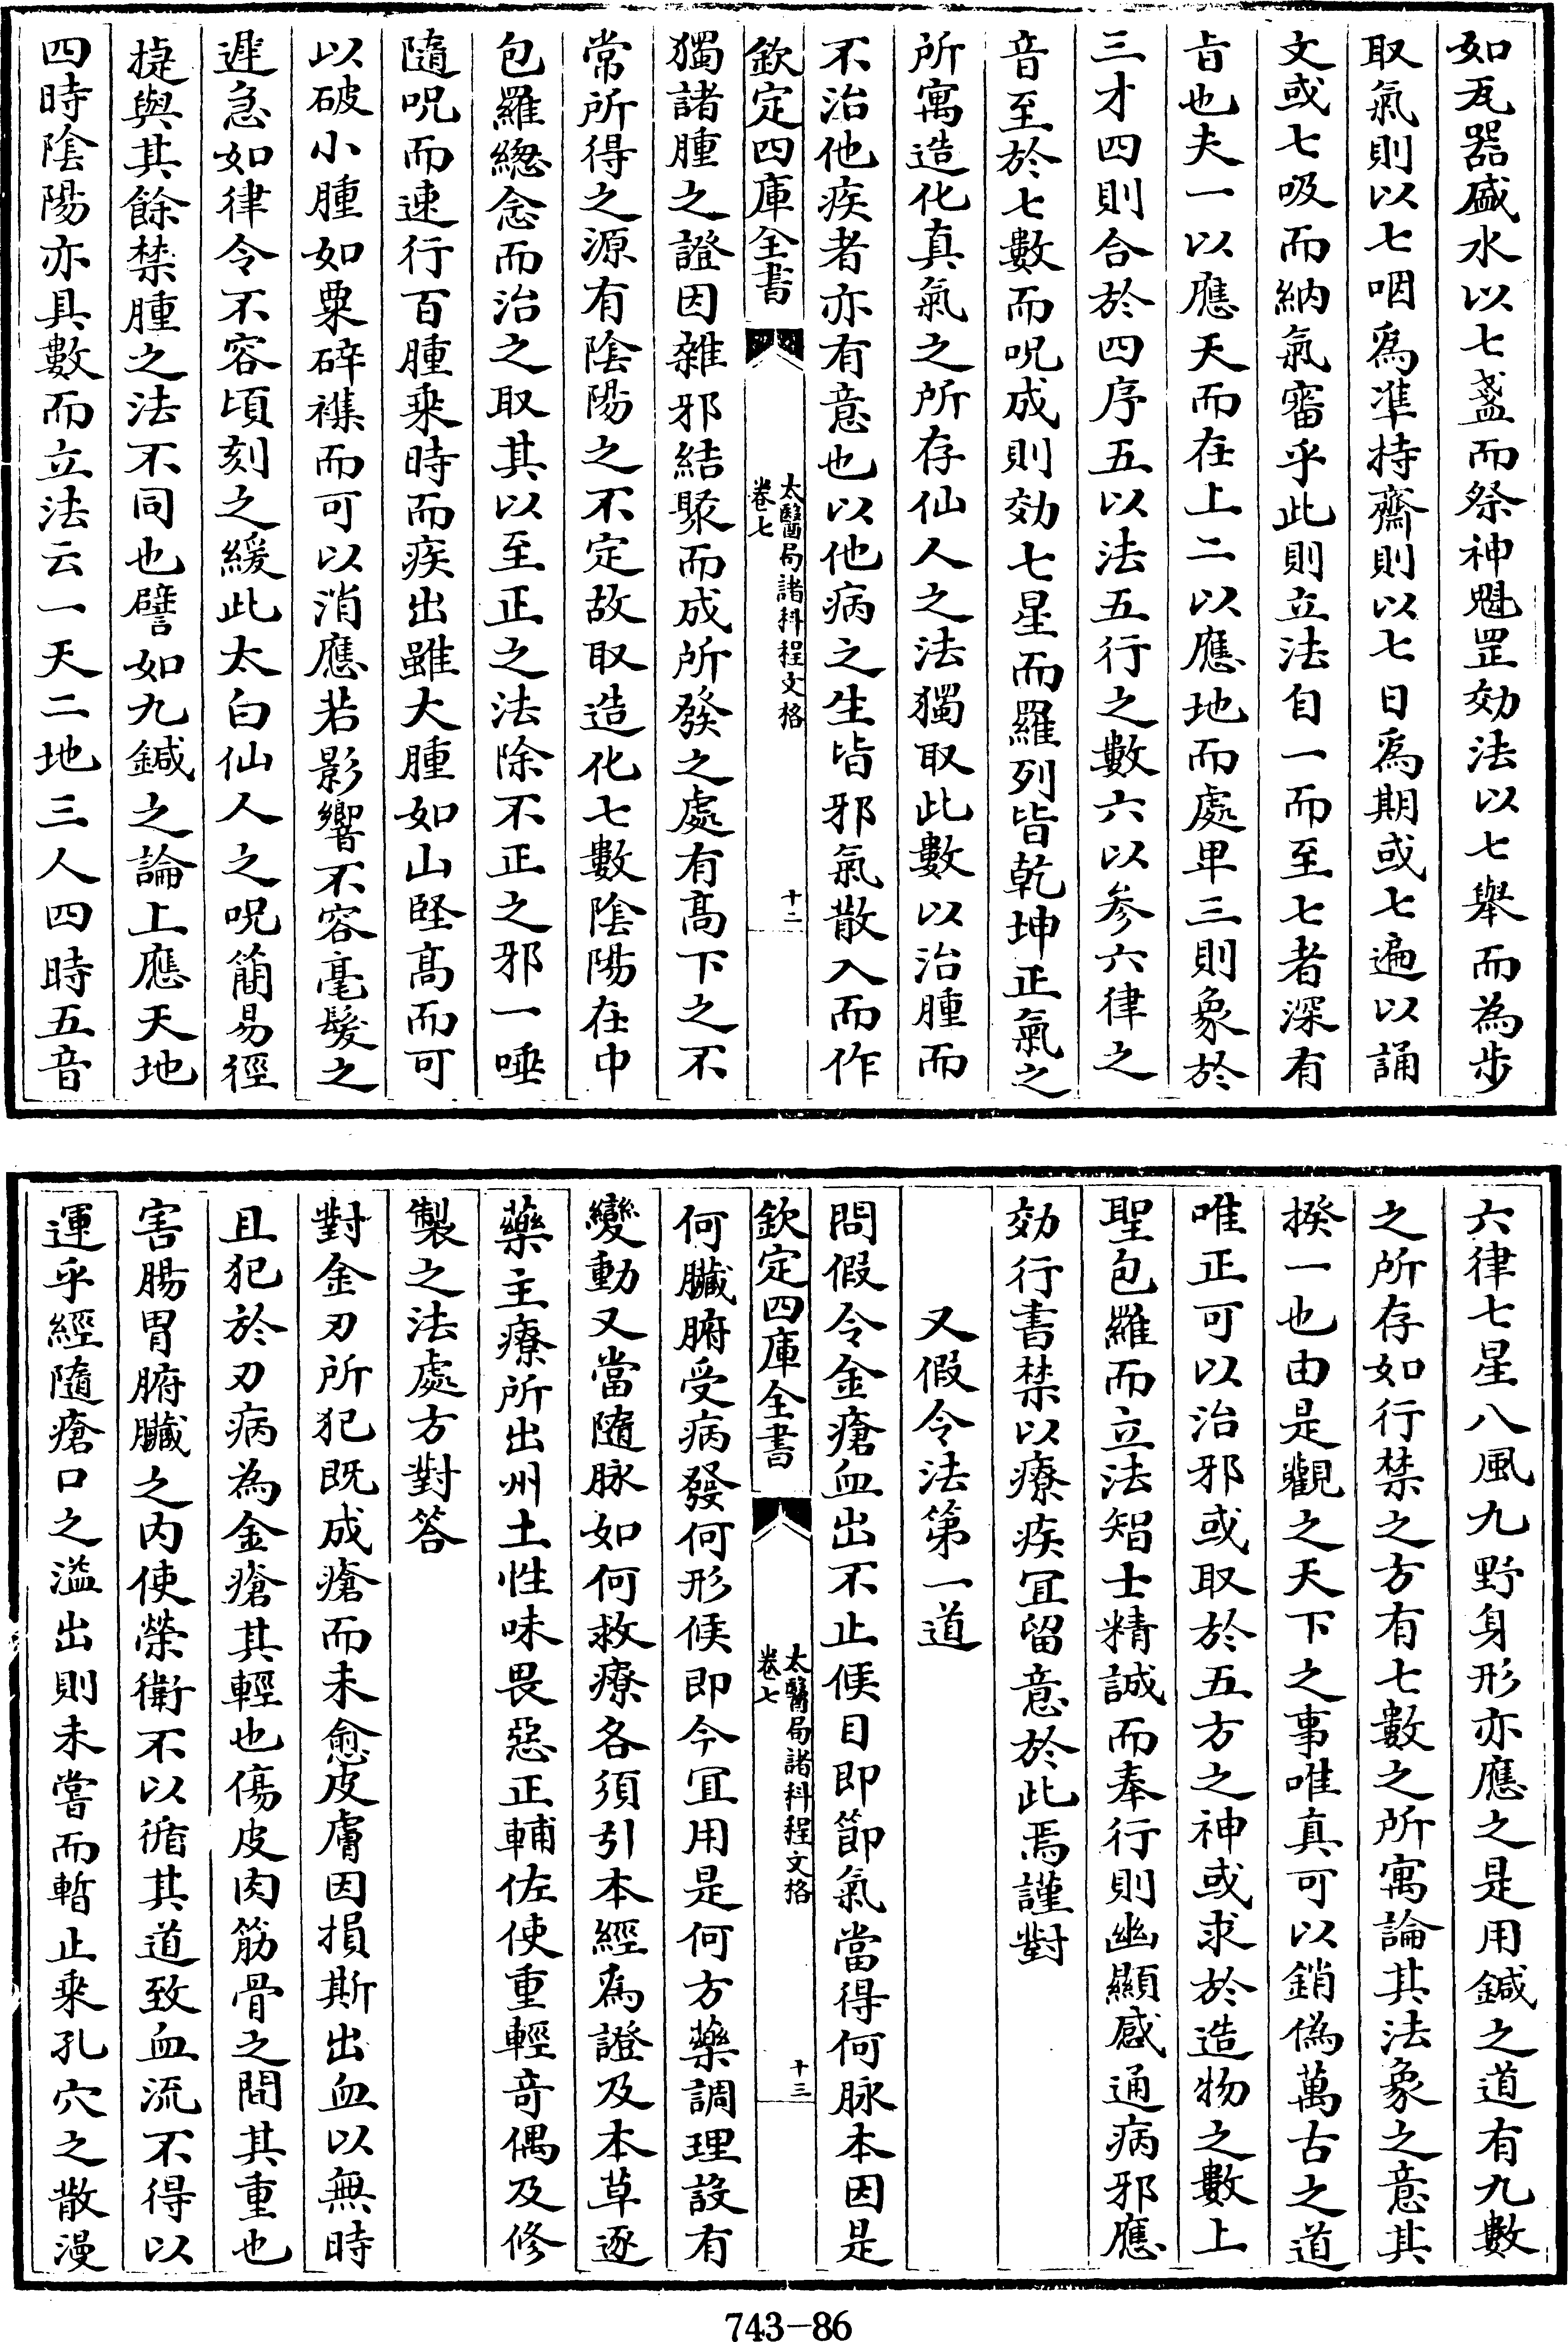 如瓦器盛水以七盞而祭神魁罡効法以七舉而為步
取氣則以七咽爲準持齋則以七日爲期或七遍以誦
文或七吸而納氣審乎此則立法自一而至七者深有
旨也夫一以應天而在上二以應地而處卑三則象於
三才四則合於四序五以法五行之數六以參六律之
音至於七數而呪成則効七星而羅列皆乾坤正氣之
所寓造化真氣之所存仙人之法獨取此數以治腫而
不治他疾者亦有意也以他病之生皆邪氣散入而作
欽定四庫全書
太醫局諸科程文格
卷七
十二
獨諸腫之證因雜邪結聚而成所發之處有高下之不
常所得之源有陰陽之不定故取造化七數陰陽在中
包羅緫念而治之取其以至正之法除不正之邪一唾
隨呪而速行百腫乗時而疾出雖大腫如山堅高而可
以破小腫如粟碎襍而可以消應若影響不容毫髮之
遲急如律令不容頃刻之緩此太白仙人之呪簡易徑
捷與其餘禁腫之法不同也譬如九鍼之論上應天地
四時陰陽亦具數而立法云一天二地三人四時五音
六律七星八風九野身形亦應之是用鍼之道有九數
之所存如行禁之方有七數之所寓論其法象之意其
揆一也由是觀之天下之事唯真可以銷偽萬古之道
唯正可以治邪或取於五方之神或求於造物之數上
聖包羅而立法智士精誠而奉行則幽顯感通病邪應
効行書禁以療疾宜留意於此焉謹對
又假令法第一道
問假令金瘡血出不止候目即節氣當得何脉本因是
欽定四庫全書
太醫局諸科程文格
卷七
十三
何臟腑受病發何形候即今宜用是何方藥調理設有
變動又當隨脉如何救療各須引本經爲證及本草逐
藥主療所出州土性味畏惡正輔佐使重輕竒偶及修
製之法處方對答
對金刃所犯既成瘡而未愈皮膚因損斯出血以無時
且犯於刃病為金瘡其輕也傷皮肉筋骨之間其重也
害腸胃腑臟之内使榮衛不以循其道致血流不得以
運乎經隨瘡口之溢出則未嘗而暫止乗孔穴之散漫
743-86